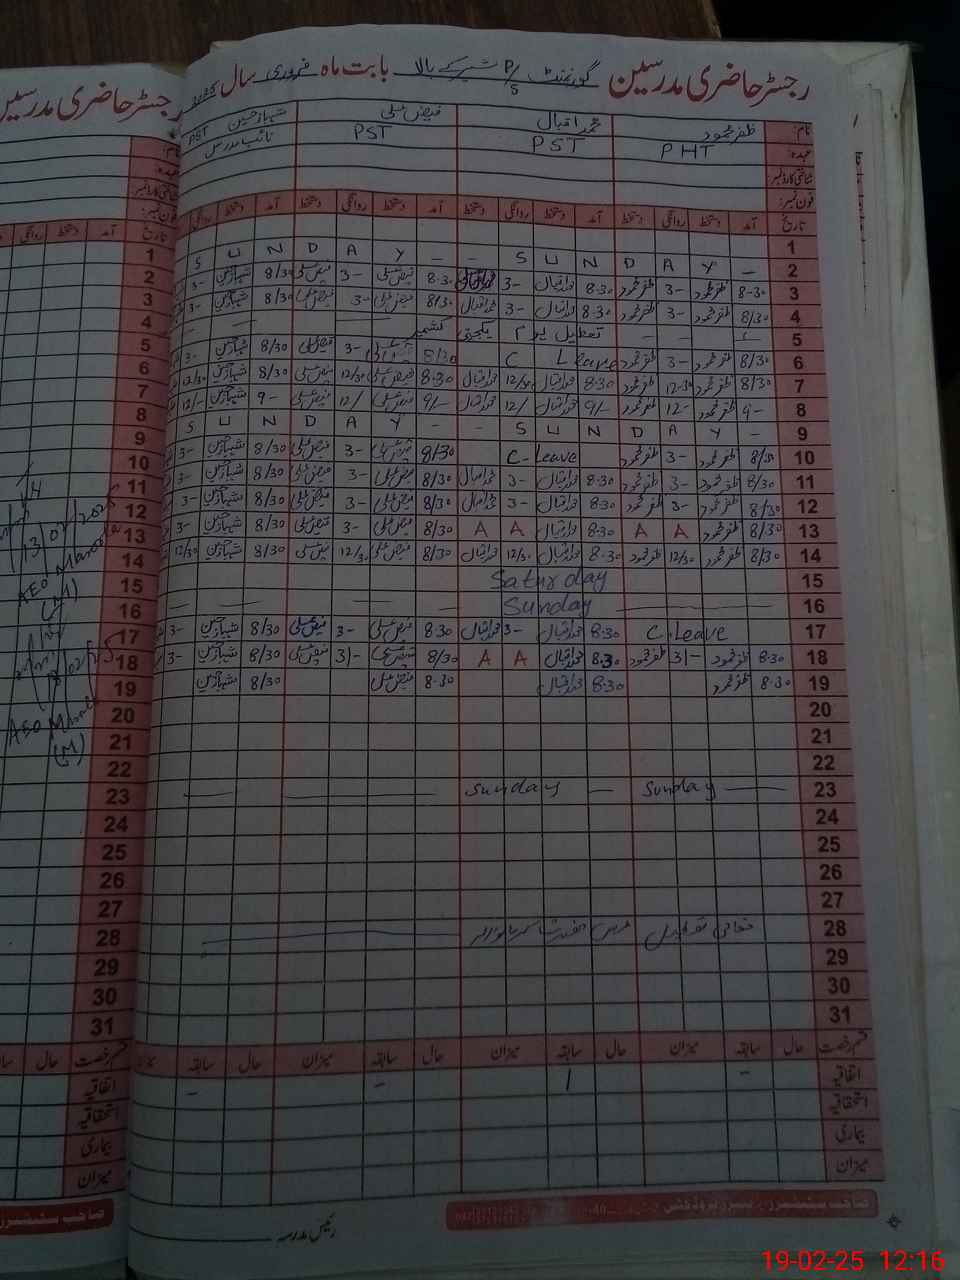 رجسٹر حاضری مدرسین گورنمنٹ P/S بالا بابت ماہ فروری سال
نام: ظفر محمود محمد اقبال فیض علی شہباز حسین PST
عہدہ: PHT PST PST نائب مدرس
شناختی کارڈ نمبر
فون نمبر:
تاریخ آمد دستخط روانگی دستخط آمد دستخط روانگی دستخط آمد دستخط روانگی دستخط آمد دستخط روانگی
1
S U N D A Y - - S U N D A Y - 2
3 8-30 ظفر محمود 3- ظفر محمود 8.30 محمد اقبال 3- 8.30 فیض علی 3- فیض علی 8/30 شہباز حسین 3-
4 8/30 ظفر محمود 3- ظفر محمود 8.30 محمد اقبال 3- محمد اقبال 8/30 فیض علی 3- فیض علی 8/30 شہباز حسین 3-
5 تعطیل یوم یکجہتی کشمیر
6 8/30 ظفر محمود 3- ظفر محمود C Leave 8/30 3- فیض علی 8/30 شہباز حسین 3-
7 8/30 ظفر محمود 12-30 ظفر محمود 8.30 محمد اقبال 12/30 محمد اقبال 8.30 فیض علی 12/30 فیض علی 8/30 شہباز حسین 12/30
8 9- ظفر محمود 12- ظفر محمود 9/- محمد اقبال 12/ محمد اقبال 9/- فیض علی 12/ فیض علی 9- شہباز حسین 12/-
S U N D A Y - - S U N D A Y - 9
10 8/30 ظفر محمود 3- ظفر محمود C-Leave 8/30 فیض علی 3- فیض علی 8/30 شہباز حسین 3-
11 8/30 ظفر محمود 3- ظفر محمود 8.30 محمد اقبال 3- محمد اقبال 8/30 فیض علی 3- فیض علی 8/30 شہباز حسین 3-
12 8/30 ظفر محمود 3- ظفر محمود 8.30 محمد اقبال 3- محمد اقبال 8/30 فیض علی 3- فیض علی 8/30 شہباز حسین 3-
13 8/30 ظفر محمود A A 8.30 محمد اقبال A A 8/30 فیض علی 3- فیض علی 8/30 شہباز حسین 3-
14 8/30 ظفر محمود 12/30 ظفر محمود 8.30 محمد اقبال 12/30 محمد اقبال 8/30 فیض علی 12/30 فیض علی 8/30 شہباز حسین 12/30
Saturday 15
Sunday 16
17 C.Leave 8.30 محمد اقبال 3- محمد اقبال 8.30 فیض علی 3- فیض علی 8/30 شہباز حسین 3-
18 8.30 ظفر محمود 3/- ظفر محمود 8.30 محمد اقبال A A 8/30 فیض علی 3/- فیض علی 8/30 شہباز حسین 3-
19 8.30 ظفر محمود 8.30 محمد اقبال 8.30 فیض علی 8/30 شہباز حسین
20
21
22
Sunday Sunday 23
24
25
26
27
28 مقامی تعطیل عرس
29
30
31
قسم رخصت حال سابقہ میزان حال سابقہ میزان حال سابقہ میزان حال سابقہ میزان
اتفاقیہ - 1 - -
استحقاقیہ
بیماری
میزان
رئیس مدرسہ
رجسٹر حاضری مدرسین
نام:
عہدہ:
شناختی کارڈ نمبر
فون نمبر:
تاریخ آمد دستخط روانگی
1
2
3
4
5
6
7
8
9
10
11
12
13
14
15
16
17
18
19
20
21
22
23
24
25
26
27
28
29
30
31
13/02/2025
AEO
(M)
AEO
(M)
قسم رخصت حال
اتفاقیہ
استحقاقیہ
بیماری
میزان
19-02-25 12:16